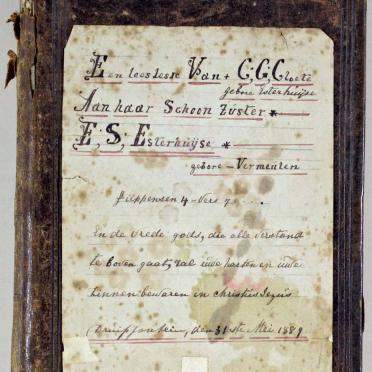 Een leeslesse Van + C, G, Cloete
gebore Esterhuijse
Aan haar Schoon Zúster *
E, S, Esterhuijse *
gebore - Vermeulen
4 - Vers 7
En de vrede gods, die alle verstand
te boven gaat, zal uwe harten en uwe
zinnen bewaren in Christus Jezus
den 31ste Mei 1889